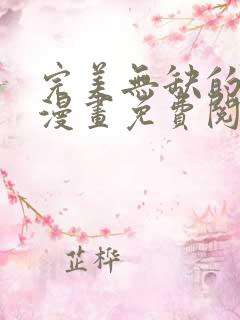 完美無缺的
漫畫免費閱
芷桦